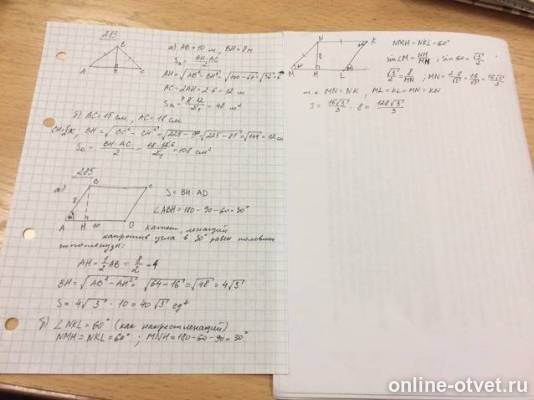 283
B
A H C
а) AB=10 м, BH=8 м
S△ = BH·AC / 2
AH = √AB²-BH² = √100-64 = √36 = 6
AC = 2AH = 2·6 = 12 м
S△ = 8·12 / 2 = 48 м²
б) BC=15 см, AC=18 см
BH = √BC²-CH² = √225-9² = √225-81 = √144 = 12 см
S△ = BH·AC / 2 = = 108 см²
285
а)
B C
8
A H 10 D
S = BH·AD
∠ABH = 180-90-60 = 30°
Катет, лежащий
напротив угла в 30° равен половине
гипотенузы:
AH = 1/2 AB = 8/2 = 4
BH = √AB²-AH² = √64-16 = √48 = 4√3
S = 4√3 · 10 = 40√3 ед²
б) ∠NKL = 60° (как накрестлежащий)
NMH = NKL = 60° ; MNH = 180-60-90 = 30°
N K
8
M H L
NMH = NKL = 60°
= NH / MN ; sin 60 = √3 / 2
√3 / 2 = 8 / MN ; MN = = 16 / √3 = 16√3 / 3
т.к. MN = NK, ML = KL = MN = KN
S = 16√3 / 3 · 8 = 128√3 / 3
online-otvet.ru